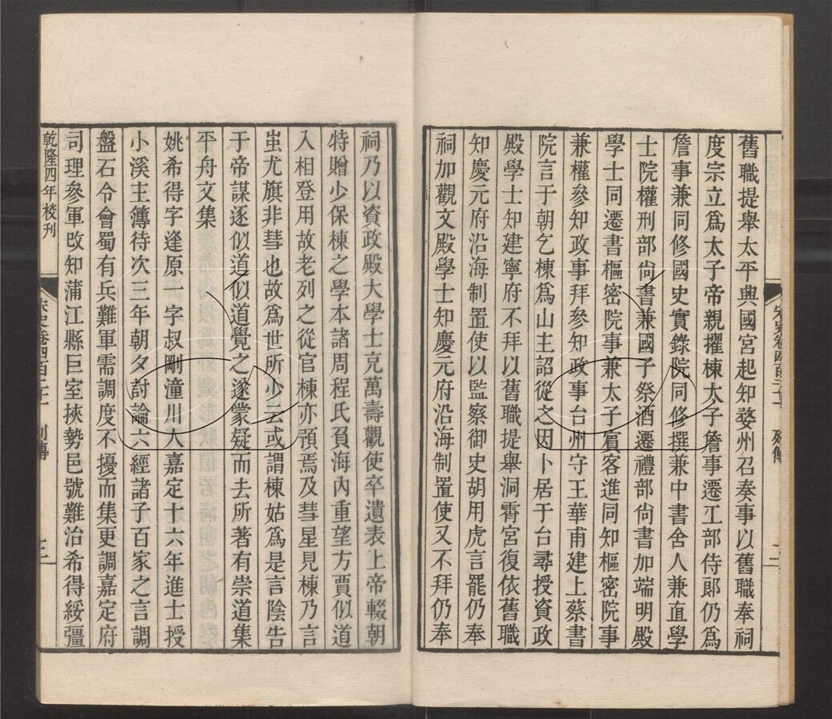 舊職提舉太平興國宮起知婺州召奏事以舊職奉祠
度宗立爲太子帝親擢棟太子詹事遷工部侍郞仍爲
詹事兼同修國史實錄院同修撰兼中書舍人兼直學
士院權刑部尙書兼國子祭酒遷禮部尙書加端明殿
學士同遷書樞密院事兼太子賓客進同知樞密院事
兼權參知政事拜參知政事台州守王華甫建上蔡書
院言于朝乞棟爲山主詔從之因卜居于台尋授資政
殿學士知建寧府不拜以舊職提舉洞霄宮復依舊職
知慶元府沿海制置使以監察御史胡用虎言罷仍奉
祠加觀文殿學士知慶元府沿海制置使又不拜仍奉
祠乃以資政殿大學士充萬壽觀使卒遺表上帝輟朝
特贈少保棟之學本諸周程氏負海內重望方賈似道
入相登用故老列之從官棟亦預焉及彗星見棟乃言
蚩尤旗非彗也故爲世所少云或謂棟姑爲是言陰告
于帝謀逐似道似道覺之遂蒙疑而去所著有崇道集
平舟文集
姚希得字逢原一字叔剛潼川人嘉定十六年進士授
小溪主簿待次三年朝夕討論六經諸子百家之言調
盤石令會蜀有兵難軍需調度不擾而集更調嘉定府
司理參軍改知蒲江縣巨室挾勢邑號難治希得綏彊
乾隆四年校刊
宋史卷四百二十一 列傳
三